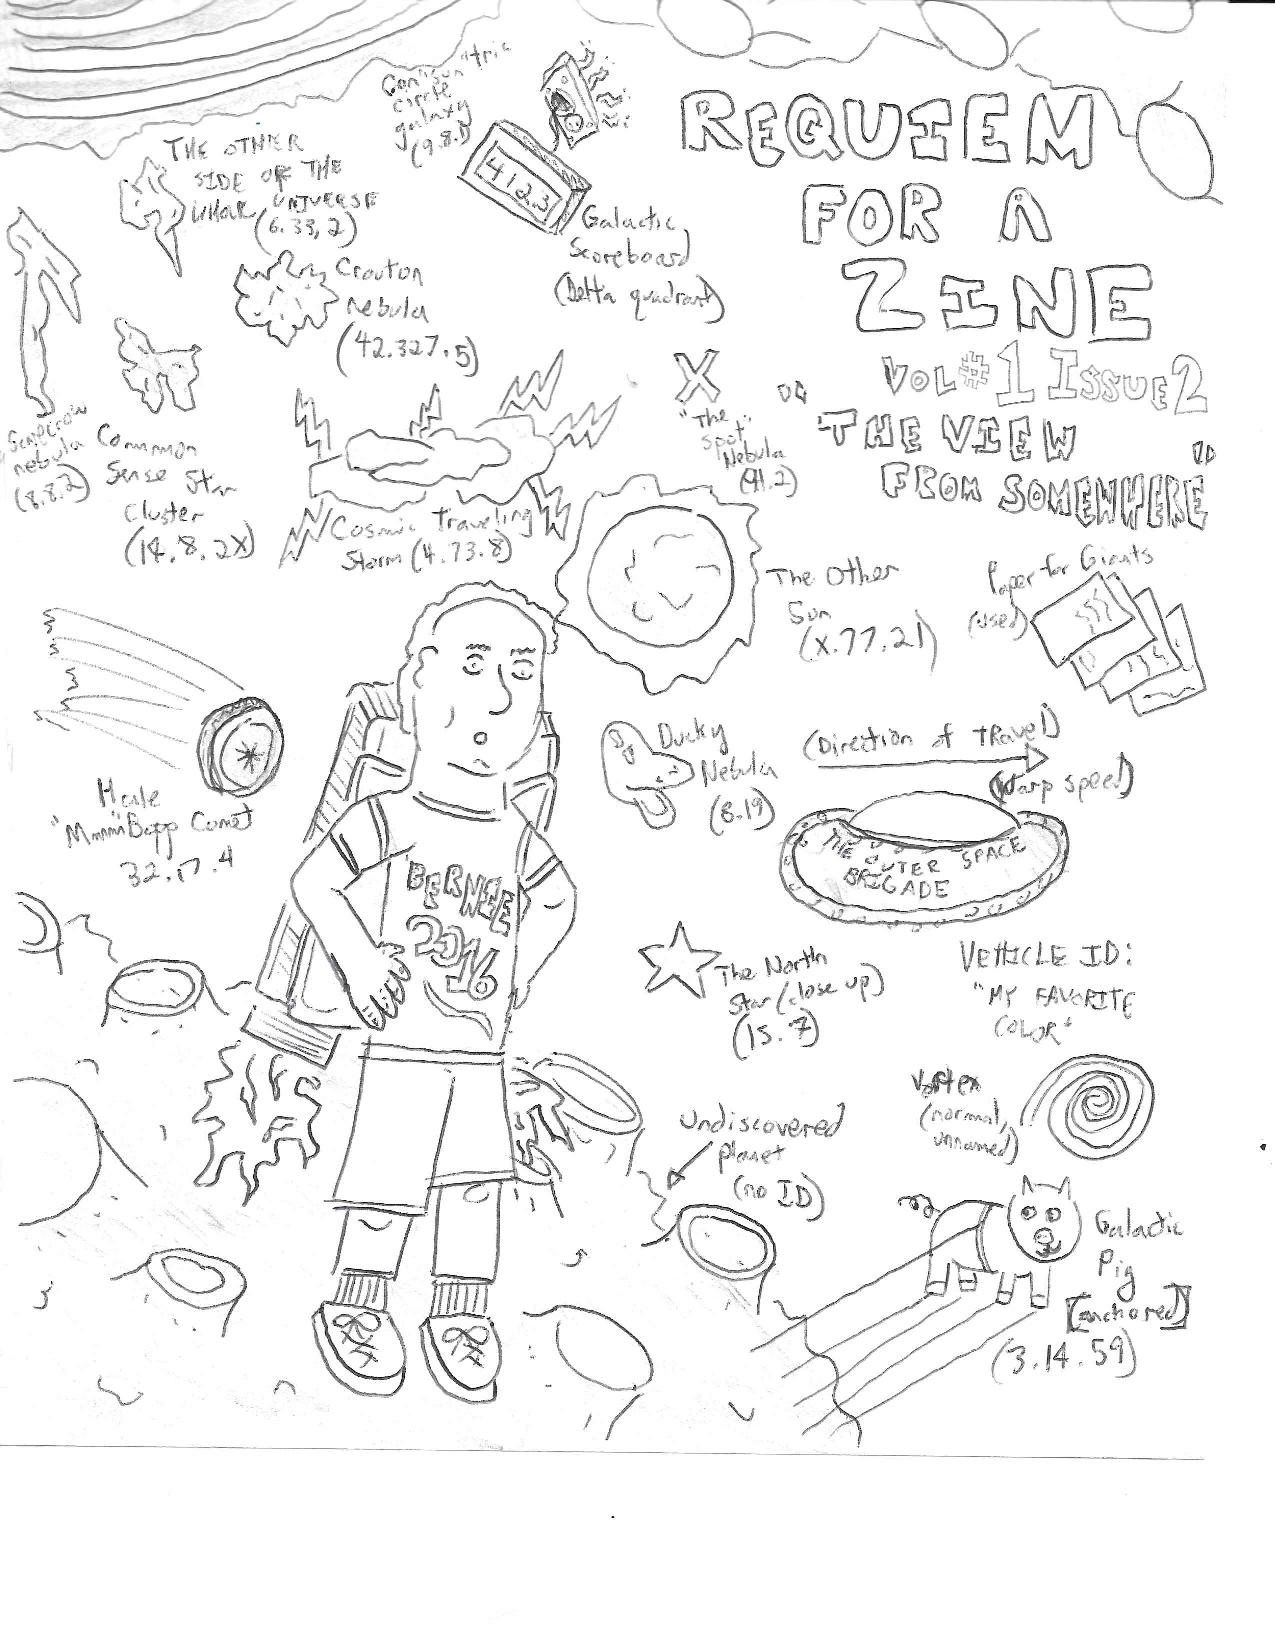 REQUIEM
FOR A
ZINE
VOL #1 ISSUE 2
"THE VIEW
FROM SOMEWHERE"
galaxy
(9.8.1)
412.3
Galactic
Scoreboard
(Delta quadrant)
THE OTHER
SIDE OF THE
UNIVERSE
(6.33,2)
Crouton
nebula
(42.327.5)
nebula
(8.8.2)
Common
Sense Star
Cluster
(14.8.2X)
Cosmic Traveling
Storm (4.73.8)
X
"The
Spot"
Nebula
(41.2)
The Other
Sun
(X.77.21)
Paper for Giants
(used)
Hale
"Mmmm"Bopp Comet
32.17.4
Ducky
Nebula
(8.19)
(Direction of TRavel)
(Warp speed)
THE OUTER SPACE
BRIGADE
BERNIE
2016
The North
Star (close up)
(15.7)
VEHICLE ID:
"MY FAVORITE
COLOR"
Vortex
(normal,
unnamed)
Undiscovered
planet
(no ID)
Galactic
Pig
[anchored]
(3.14.59)